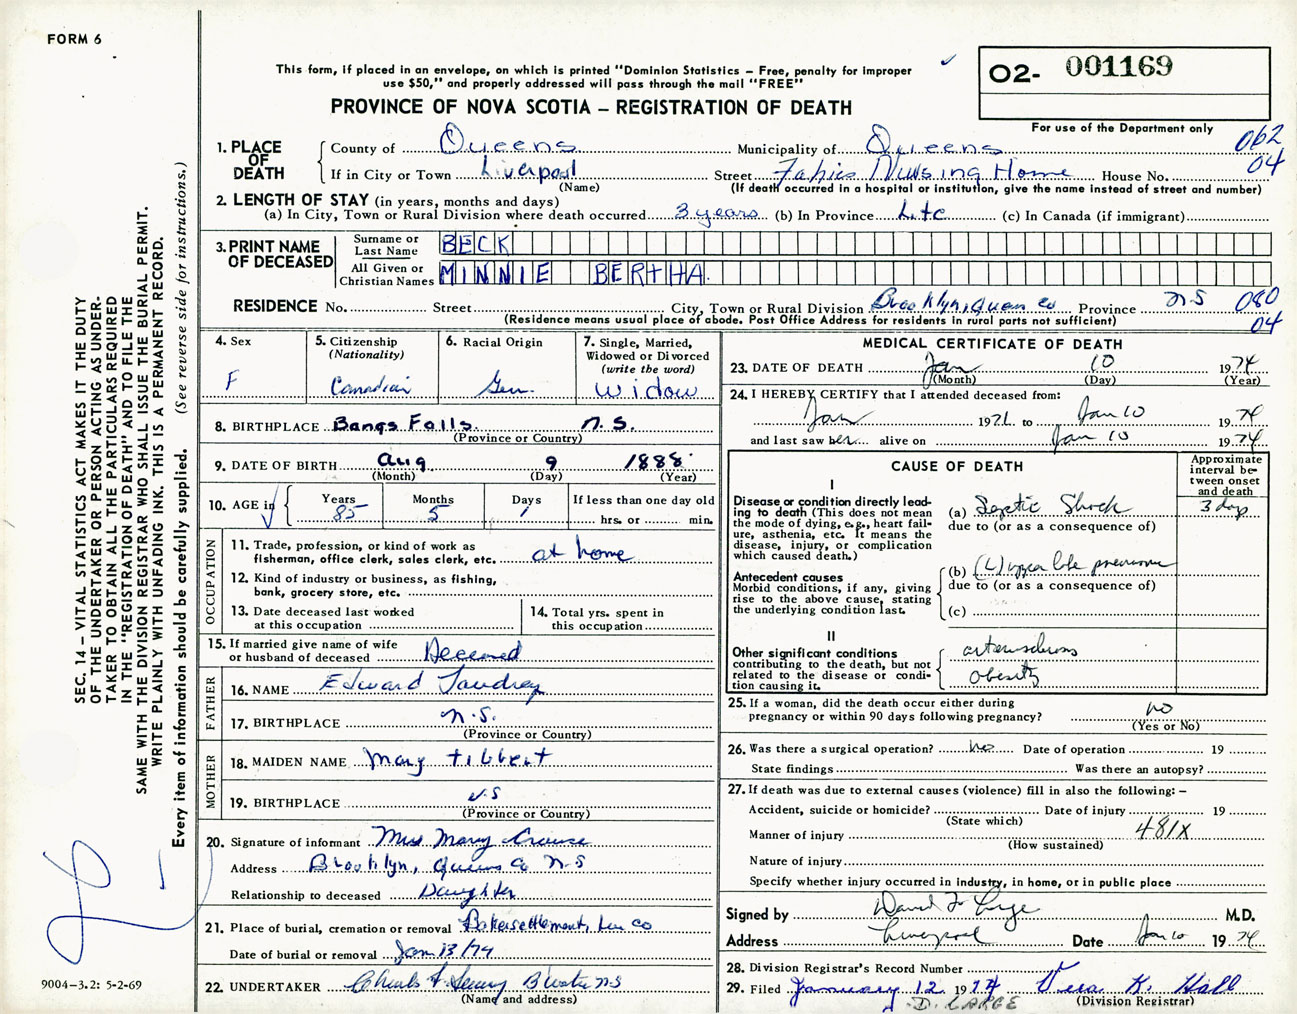 FORM 6
This form, if placed in an envelope, on which is printed "Dominion Statistics – Free, penalty for improper
use $50," and properly addressed will pass through the mail "FREE"
PROVINCE OF NOVA SCOTIA – REGISTRATION OF DEATH
02- 001169
For use of the Department only
062
04
1. PLACE OF DEATH
County of Queens Municipality of Queens
If in City or Town Liverpool Street Fahies Nursing Home House No.
(Name) (If death occurred in a hospital or institution, give the name instead of street and number)
2. LENGTH OF STAY (in years, months and days)
(a) In City, Town or Rural Division where death occurred 3 years (b) In Province Life (c) In Canada (if immigrant)
3. PRINT NAME OF DECEASED
Surname or Last Name BECK
All Given or Christian Names MINNIE BERTHA
RESIDENCE No. Street City, Town or Rural Division Brooklyn, Queen Co Province N.S 080
(Residence means usual place of abode. Post Office Address for residents in rural parts not sufficient) 04
4. Sex
F
5. Citizenship
(Nationality)
Canadian
6. Racial Origin
Ger.
7. Single, Married,
Widowed or Divorced
(write the word)
Widow
8. BIRTHPLACE Bangs Falls. N.S.
(Province or Country)
9. DATE OF BIRTH Aug 9 1888
(Month) (Day) (Year)
10. AGE in
Years Months Days If less than one day old
85 5 1 hrs. or min.
OCCUPATION
11. Trade, profession, or kind of work as
fisherman, office clerk, sales clerk, etc. at home
12. Kind of industry or business, as fishing,
bank, grocery store, etc.
13. Date deceased last worked
at this occupation
14. Total yrs. spent in
this occupation
15. If married give name of wife
or husband of deceased Deceased
FATHER
16. NAME Edward
17. BIRTHPLACE N.S.
(Province or Country)
MOTHER
18. MAIDEN NAME Mary Tibbert
19. BIRTHPLACE N.S
(Province or Country)
20. Signature of informant Mrs Mary Crouse
Address Brooklyn, Queens Co N-S
Relationship to deceased Daughter
21. Place of burial, cremation or removal Bakersettlement, Lun Co
Date of burial or removal Jan 13/74
22. UNDERTAKER
(Name and address)
MEDICAL CERTIFICATE OF DEATH
23. DATE OF DEATH Jan 10 1974
(Month) (Day) (Year)
24. I HEREBY CERTIFY that I attended deceased from:
Jan 1971 to Jan 10 1974
and last saw her alive on Jan 10 1974
CAUSE OF DEATH
Approximate
interval be-
tween onset
and death
I
Disease or condition directly lead-
ing to death (This does not mean
the mode of dying, e.g., heart fail-
ure, asthenia, etc. It means the
disease, injury, or complication
which caused death.)
(a) Septic Shock 3 days
due to (or as a consequence of)
Antecedent causes
Morbid conditions, if any, giving
rise to the above cause, stating
the underlying condition last.
(b) (L) upper lobe pneumonia
due to (or as a consequence of)
(c)
II
Other significant conditions
contributing to the death, but not
related to the disease or condi-
tion causing it.
arteriosclerosis
obesity
25. If a woman, did the death occur either during
pregnancy or within 90 days following pregnancy? no
(Yes or No)
26. Was there a surgical operation? no Date of operation 19
State findings Was there an autopsy?
27. If death was due to external causes (violence) fill in also the following: –
Accident, suicide or homicide? Date of injury 19
(State which)
Manner of injury 481X
(How sustained)
Nature of injury
Specify whether injury occurred in industry, in home, or in public place
Signed by M.D.
Address Liverpool Date Jan 10 1974
28. Division Registrar's Record Number
29. Filed January 12 1974 Vera K. Hall
(Division Registrar)
D. LARGE
SEC. 14 – VITAL STATISTICS ACT MAKES IT THE DUTY
OF THE UNDERTAKER OR PERSON ACTING AS UNDER-
TAKER TO OBTAIN ALL THE PARTICULARS REQUIRED
IN THE "REGISTRATION OF DEATH" AND TO FILE THE
SAME WITH THE DIVISION REGISTRAR WHO SHALL ISSUE THE BURIAL PERMIT.
WRITE PLAINLY WITH UNFADING INK. THIS IS A PERMANENT RECORD.
Every item of information should be carefully supplied. (See reverse side for instructions.)
9004-3.2: 5-2-69